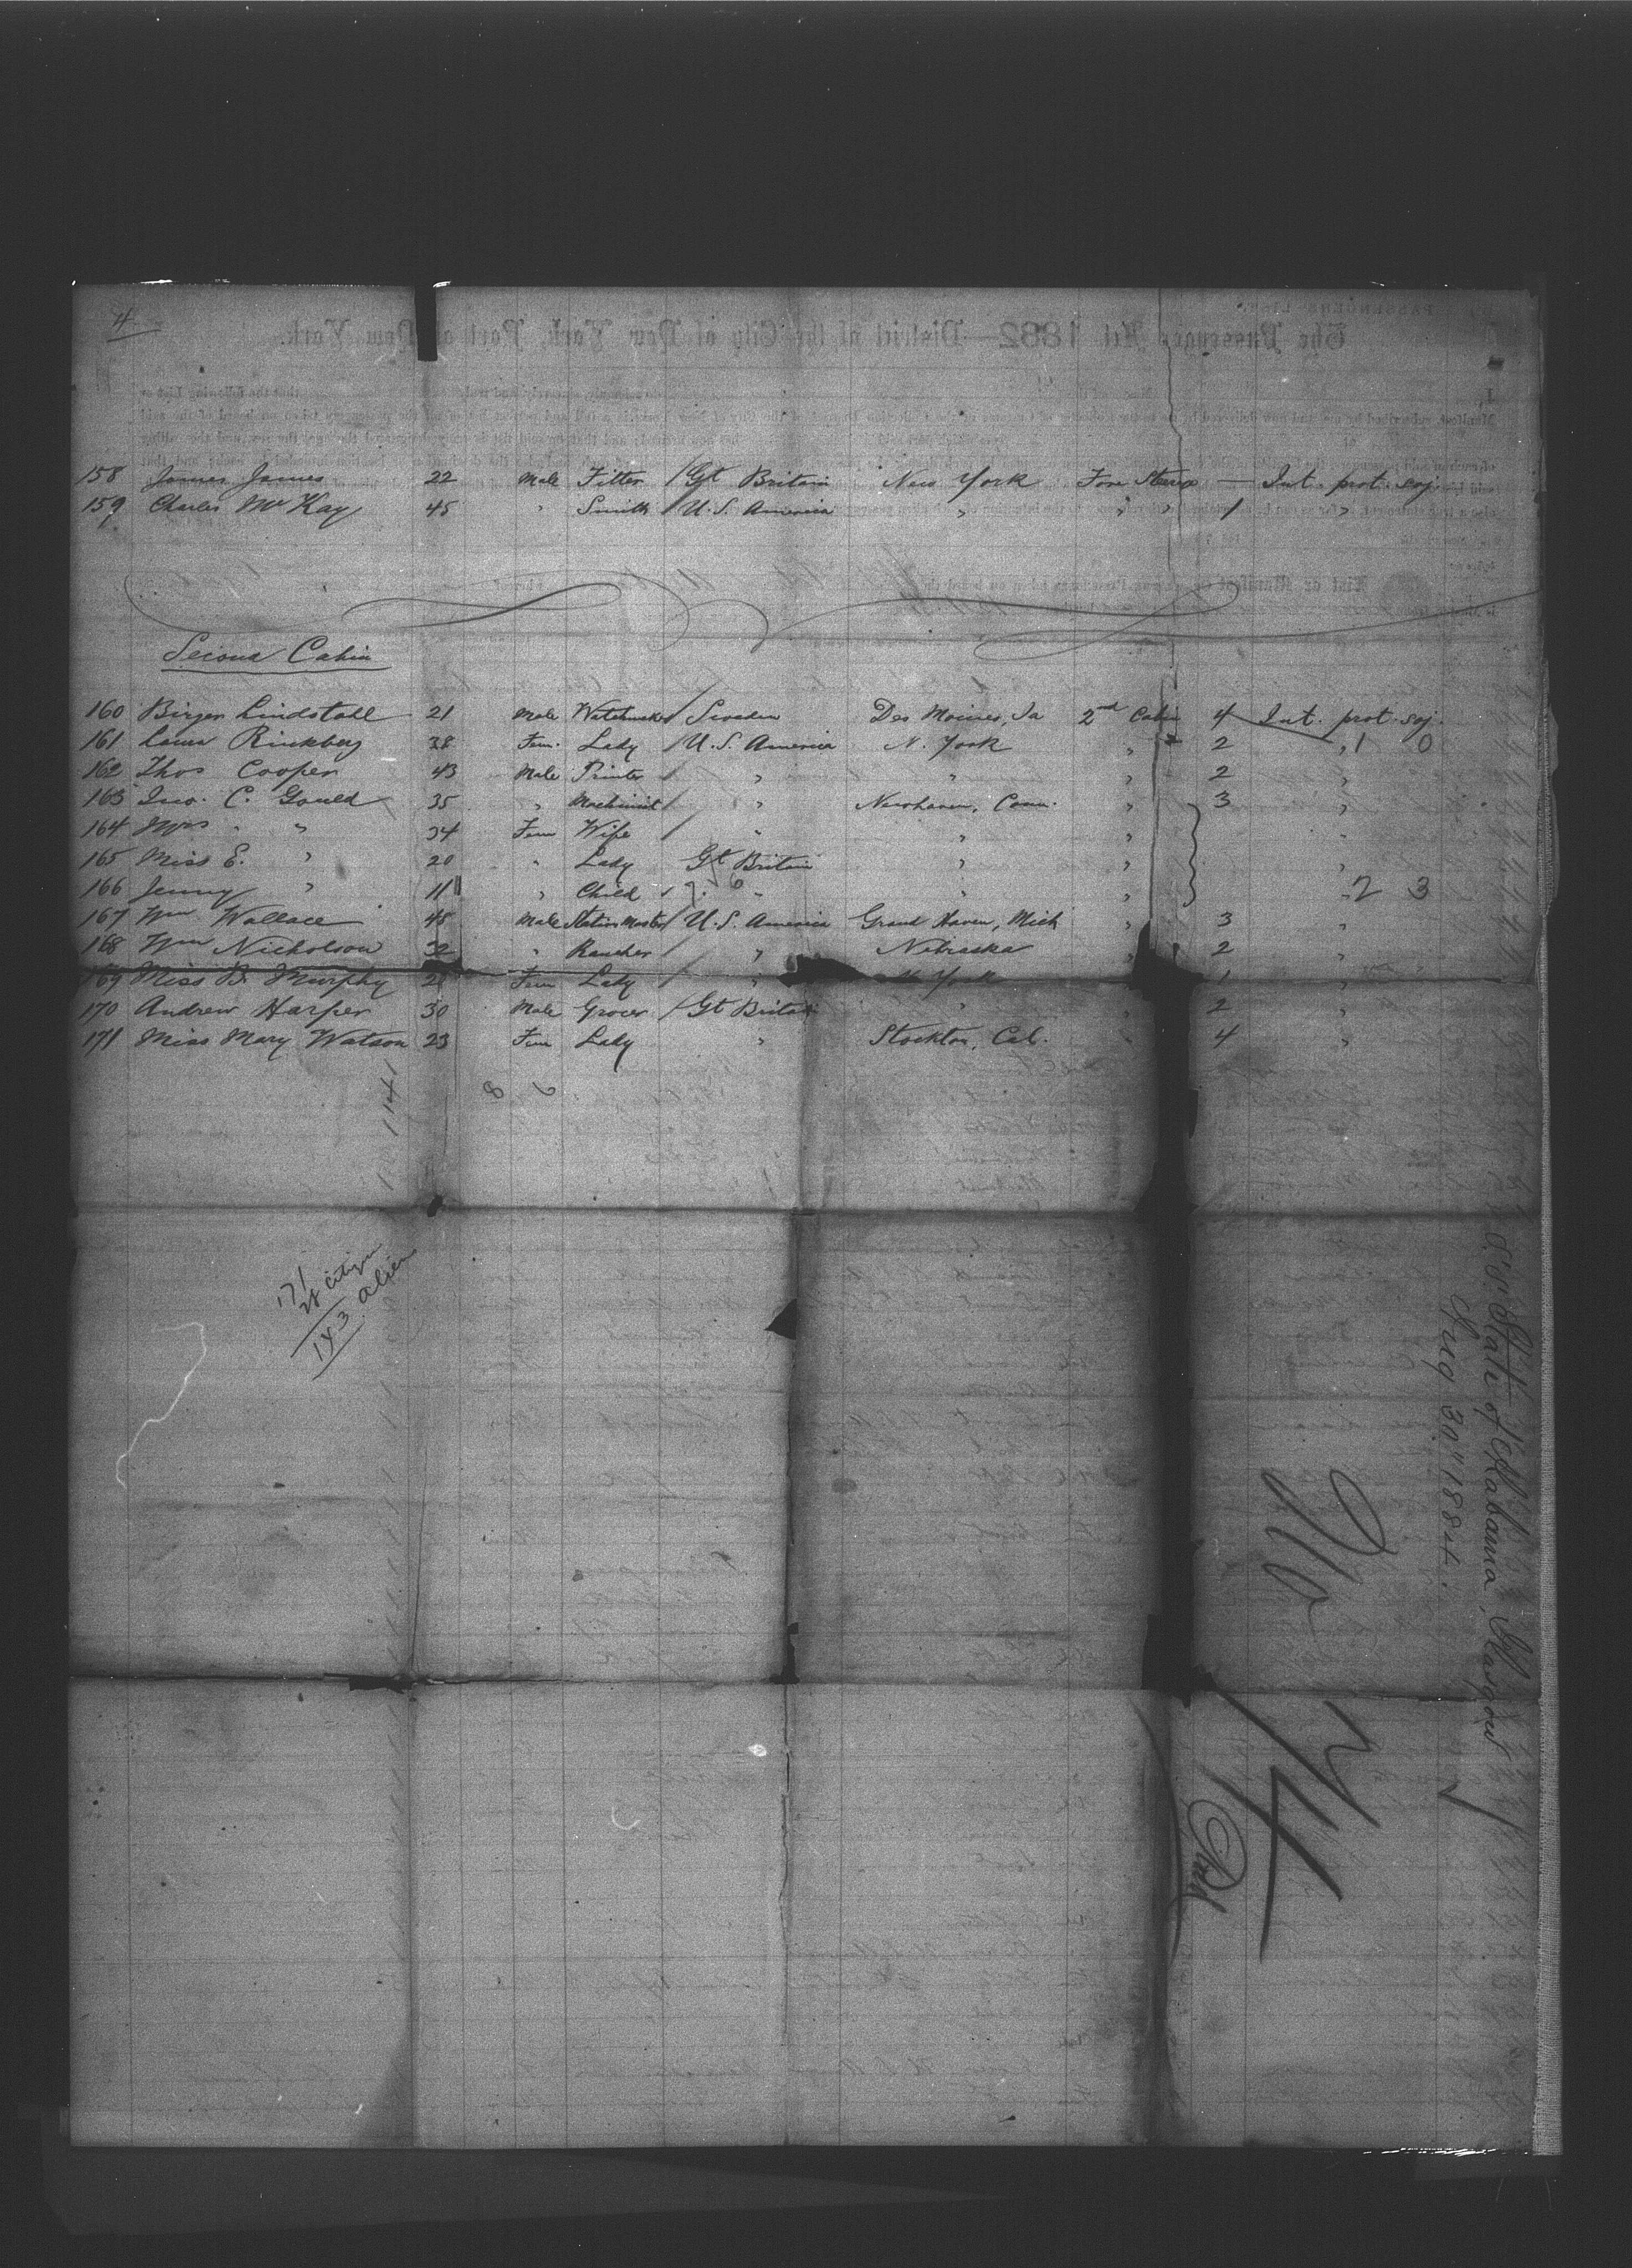 4
158 James James 22 Male Fitter / Gt Britain New York Fore Steerage — Int. prot. soj.
159 Charles McKay 45 " Smith / U.S. America " " " 1 "
Second Cabin
160 Birger Lindstahl 21 Male Watchmaker / Sweden Des Moines, Ia 2nd Cabin 4 Int. prot. soj.
161 Laura Rinkberg 38 Fem. Lady / U.S. America N. York " 2 " 1 0
162 Thos Cooper 43 Male Printer / " " " 2 "
163 Jno. C. Gould 35 " Machinist / " Newhaven, Conn. " 3 "
164 Mrs " " 34 Fem Wife / " " " "
165 Miss E. " 20 " Lady Gt Britain " " "
166 Jenny " 11 " Child / " " " " 2 3
167 Wm Wallace 48 Male Station Master / U.S. America Grand Haven, Mich " 3 "
168 Wm Nicholson 32 " Rancher / " Nebraska " 2 "
169 Miss B. Murphy Fem Lady / " N York 1 "
170 Andrew Harper 30 Male Grocer / Gt Britain " " 2 "
171 Miss Mary Watson 23 Fem Lady " Stockton, Cal. " 4 "
8 6
141
171
28 citizen
143 alien
S.S. State of Alabama, Glasgow
Aug 30" 1884.
74